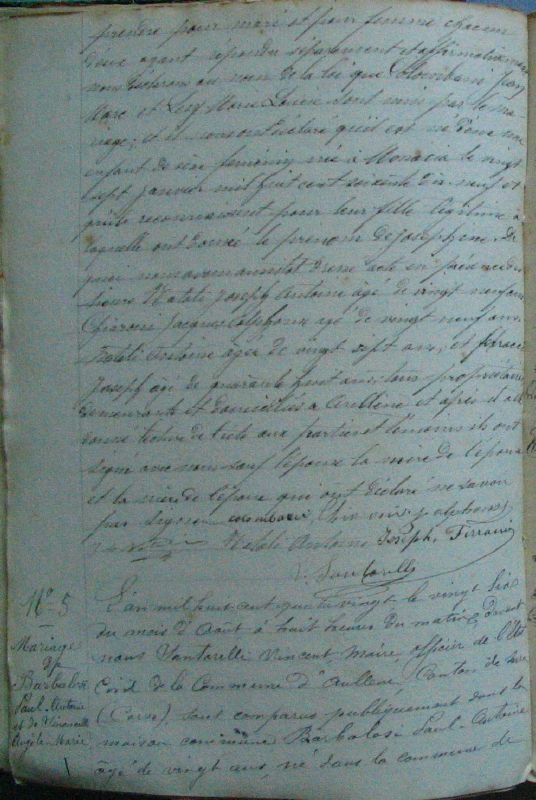 prendre pour mari et pour femme chacun
deux ayant repondu séparément et affirmativement
nous declarons au nom de la loi que Colombani Jean
Marc et Marie Lucie sont unis par le ma
riage; et ils nous ont déclaré qu'il est né d'eux un
enfant de sexe feminin née à Monacia le vingt
sept janvier mil huit cent soixante dix neuf et
reconnaissent pour leur fille légitime à
laquelle ont donné le prenom de Josephine. De
quoi nous avons dressé acte en présence des
sieurs Natali Joseph Antoine âgé de vingt neuf ans
Jacques Alphonse âgé de vingt neuf ans
Natali Antoine âgé de vingt sept ans, et Ferracci
Joseph âgé de quarante huit ans, tous propriétaires
demeurants et domiciliés à Aullène et après
donné lecture aux parties et témoins ils ont
signé avec nous sauf l'épouse la mère de l'époux
et la mère de l'épouse qui ont déclaré ne savoir
par signer
Natali Antoine Joseph, Ferracci
V. Santarelli
N° 5
Mariage
de
Barbolosi
Paul-Antoine
et de
Angèle-Marie
L'an mil huit cent quatre vingt le vingt six
du mois d'Août à huit heures du matin, devant
nous Santarelli Vincent, Maire, officier de l'État
Civil de la Commune d'Aullene, Canton de Serra
(Corse), sont comparus publiquement dans la
maison commune Barbolosi Paul Antoine
âgé de vingt ans, né dans la commune de